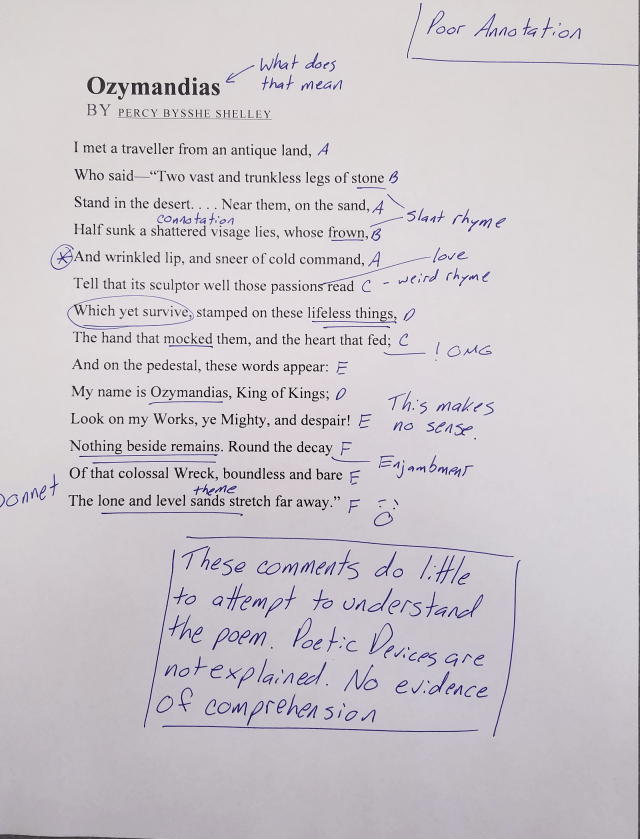 Poor Annotation
What does
that mean
Ozymandias
BY PERCY BYSSHE SHELLEY
I met a traveller from an antique land, A
Who said—“Two vast and trunkless legs of stone B
Stand in the desert. . . . Near them, on the sand, A
slant rhyme
connotation
Half sunk a shattered visage lies, whose frown, B
And wrinkled lip, and sneer of cold command, A
love
Tell that its sculptor well those passions read C - weird rhyme
Which yet survive, stamped on these lifeless things, D
The hand that mocked them, and the heart that fed; C
! OMG
And on the pedestal, these words appear: E
My name is Ozymandias, King of Kings; D
This makes
no sense.
Look on my Works, ye Mighty, and despair! E
Nothing beside remains. Round the decay F
Enjambment
Of that colossal Wreck, boundless and bare E
theme
The lone and level sands stretch far away.” F
These comments do little
to attempt to understand
the poem. Poetic Devices are
not explained. No evidence
of comprehension